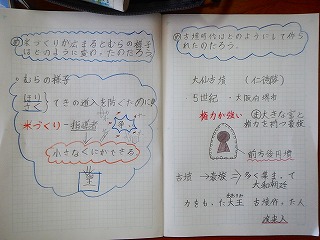 米づくりが広まるとむらの様子
はどのように変わったのだろう。
むらの様子
ほり
さく
てきの進入を防ぐために
米づくり
指導者
争い
小さなくにができる
王
古墳時代はどのようにして作ら
れたのだろう。
大仙古墳 (仁徳陵)
5世紀・大阪府堺市
権力が強い
大きな富と
権力を持つ豪族
前方後円墳
古墳 → 豪族 → 多く集まって
大和朝廷
力をもった大王 古墳作った人
渡来人